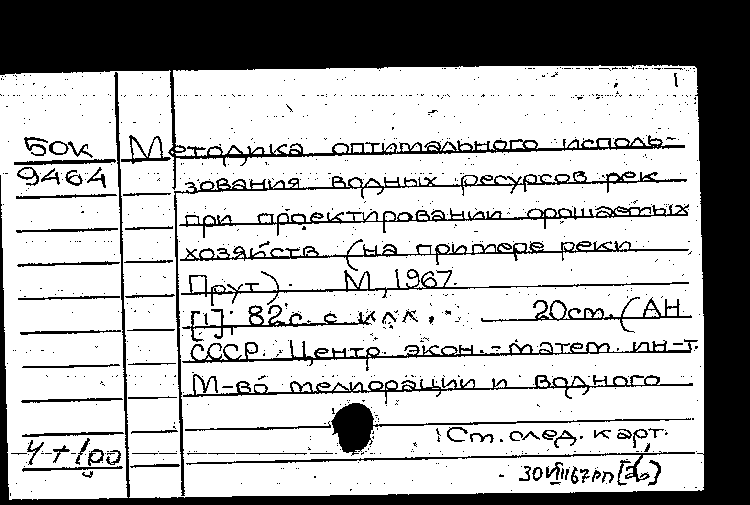 1
Бок Методика оптимального исполь-
9464 зования водных ресурсов рек
при проектировании орошаемых
хозяйств (на примере реки
Прут). М., 1967.
[1], 82 с. с илл. 20 см. (АН
СССР. Центр. экон.-матем. ин-т.
М-во мелиорации и водного
! См. след. карт.
4 + 1
30 VIII 67